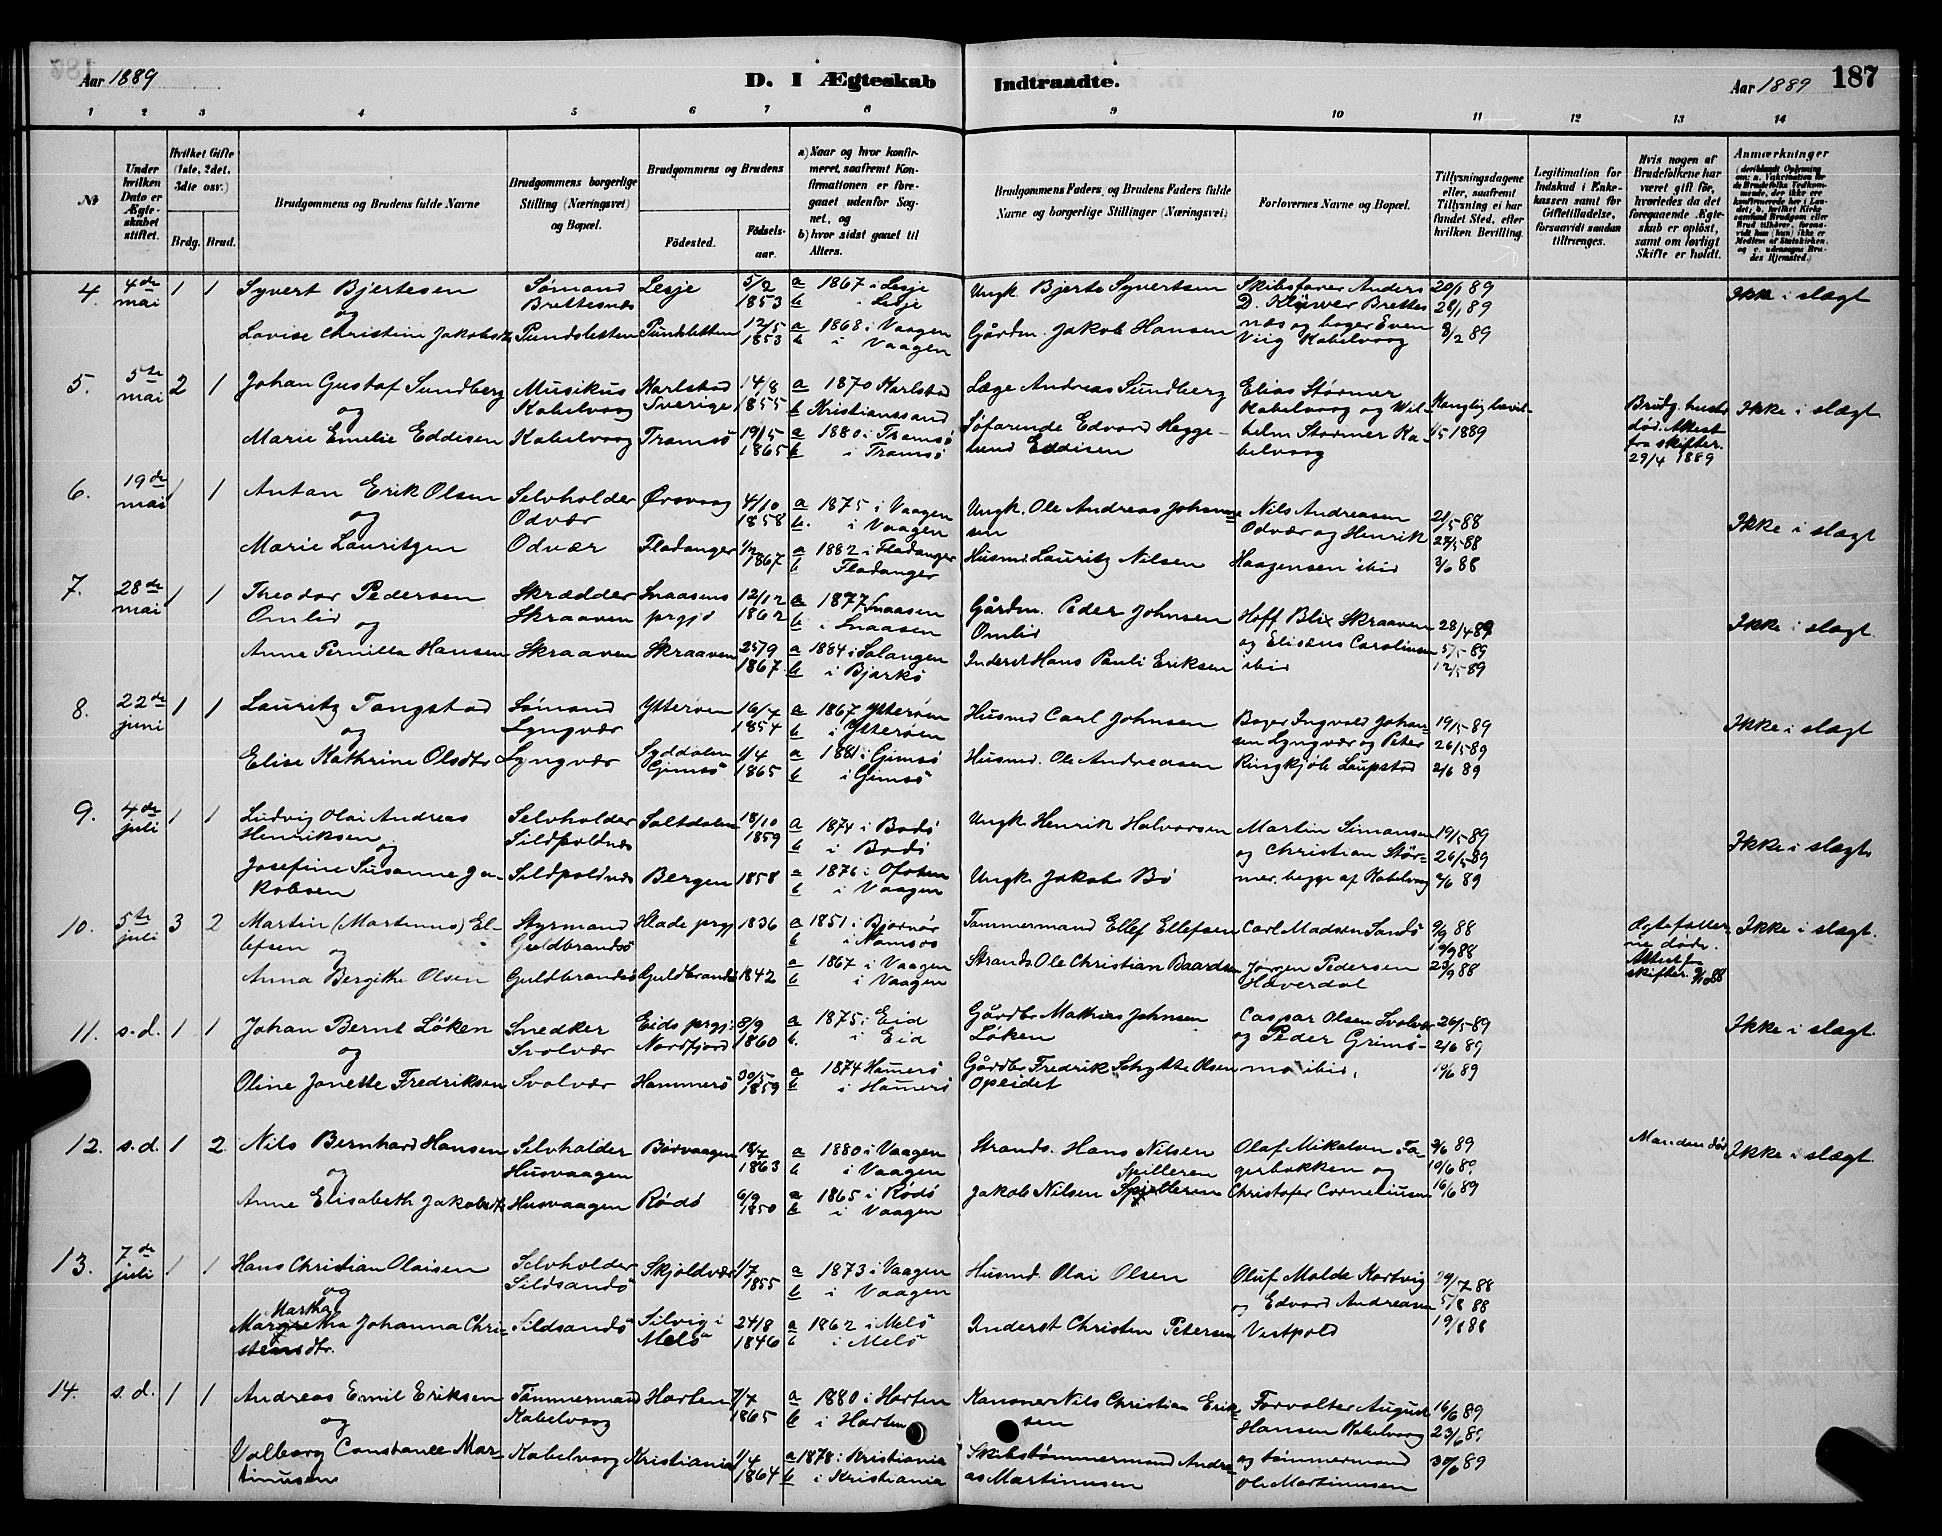 Aar 1889
D. I Ægteskab Indtraadte.
Aar 1889
187
1 2 3 4 5 6 7 8 9 10 11 12 13 14
No
Under hvilken Dato er Ægteskabet stiftet.
Hvilket Gifte (1ste, 2det, 3die osv.)
Brdg. Brud.
Brudgommens og Brudens fulde Navne
Brudgommens borgerlige Stilling (Næringsvei) og Bopæl.
Brudgommens og Brudens
Fødested.
Fødselsaar.
a) Naar og hvor konfirmeret, saafremt Konfirmationen er foregaaet udenfor Sognet, og
b) hvor sidst gaaet til Alters.
Brudgommens Faders og Brudens Faders fulde Navne og borgerlige Stillinger (Næringsvei)
Forlovernes Navne og Bopæl.
Tillysningsdagene eller, saafremt Tillysning ei har fundet Sted, efter hvilken Bevilling.
Legitimation for Indskud i Enkekassen samt for Giftetilladelse, forsaavidt saadan tiltrænges.
Hvis nogen af Brudefolkene har været gift før, hvorledes da det foregaaende Ægteskab er opløst, samt om lovligt Skifte er holdt.
Anmærkninger
4. 4de mai 1 1
Syvert Bjertesen
og
Lovise Christine Jakobsd.
Sømand
Brettesnæs
Pundsletten
Lesje
Pundsletten
5/2 1853
12/5 1853
a 1867 i Lesje
b i Lesje
a 1868 i Vaagen
b i Vaagen
Ungk. Bjerte Syvertsen
Gårdm. Jakob Hansen
Skibsfører Anders
D. Klüwer Brettes
næs og bager Even
Viig Kabelvaag
20/1 89
28/1 89
3/2 89
Ikke i slægt
5. 5te mai 2 1
Johan Gustaf Sundberg
og
Marie Emelie Eddisen
Musikus
Kabelvaag
Kabelvaag
Karlstad
Sverige
Tromsö
14/8 1855
19/5 1865
a 1870 Karlstad
b Kristianssand
a 1880 i Tromsö
b i Tromsö
Læge Andreas Sundberg
Søfarende Edvard Hegge-
lund Eddisen
Elias Størmer
Kabelvaag og Wil-
helm Størmer Ka-
belvaag
Konglig bevil-
1/5 1889
Brudg. hustr.
död. Attest
fra skifter.
29/4 1889
Ikke i slægt
6. 19de mai 1 1
Antan Erik Olsen
og
Marie Lauritzen
Selvholder
Odvær
Odvær
Ørsvaag
Fladanger
4/10 1858
1/2 1867
a 1875 i Vaagen
b. i Vaagen
a 1882 i Fladanger
b Fladanger
Ungk. Ole Andreas Johanne
sen
Husmd Lauritz Nilsen
Nils Andreasen
Odvær og Henrik
Haagensen ibid
21/5 88
27/5 88
3/6 88
Ikke i slægt
7. 28de mai 1 1
Theodor Pedersen
Omlid
og
Anne Pernilla Hansen
Skrædder
Skraaven
Skraaven
Snaasens
prgjd
Skraaven
12/12 1862
25/9 1867
a 1877 Snaasen
b i Snaasen
a 1884 i Salangen
b i Bjarkö
Gårdm. Peder Johnsen
Omlid
Inderst Hans Pauli Eriksen
Hoff Blix Skraaven
og Elisæus Carolinsen
ibid
28/4 89
5/5 89
12/5 89
Ikke i slægt
8. 22de juni 1 1
Lauritz Tangstad
og
Elise Kathrine Olsdtr
Sømand
Lyngvær
Lyngvær
Ytterøen
Syddalen
Gimsö
16/7 1854
1/4 1865
a 1867 Ytterøen
b i Ytterøen
a 1881 i Gimsö
b i Gimsö
Husmd Carl Johnsen
Husmd. Ole Andreasen
Bager Ingvald Johan-
sen Lyngvær og Peter
Ringkjöb Laupstad
19/5 89
26/5 89
2/6 89
Ikke i slægt
9. 4de juli 1 1
Ludvig Olai Andreas
Henriksen
og
Josefine Susanne Ja-
kobsen
Selvholder
Sildpoldnæs
Sildpoldnæs
Saltdalen
Bergen
18/10 1859
1858
a 1874 i Bodö
b i Bodö
a 1876 i Ofoten
b i Vaagen
Ungk Henrik Halvorsen
Ungk. Jakob Bö
Martin Simonsen
og Christian Stør-
mer, begge af Kabelvaag
19/5 89
26/5 89
2/6 89
Ikke i slægt
10. 5te juli 3 2
Martin (Martinus) El-
lefsen
og
Anna Bergithe Olsen
Styrmand
Guldbrandsö
Guldbrandsö
Klade prgj
Guldbrandsö
1836
1842
a 1851 i Bjørnör
b i Namsos
a 1867 i Vaagen
b i Vaagen
Tømmermand Ellef Ellefsen
Strands. Ole Christian Baardsen
Carl Madsen Sandö
Jørgen Pedersen
Haverdal
9/9 88
19/9 88
23/9 88
Ægtefæller-
ne döde.
Attest f.
skifter. 9/10 88
Ikke i slægt.
11. s.d. 1 1
Johan Bernt Löken
og
Oline Janette Fredriksen
Snedker
Svolvær
Svolvær
Eids prgj:
Nordfjord
Hammerö
8/9 1860
30/5 1859
a 1875 i Eid
b. i Eid
a 1874 Hamerö
b i Hamerö
Gårdbr Mathias Johnsen
Löken
Gårdbr Fredrik Schytte Olsen
Opeidet
Caspar Olsen Svolvær
og Peder Grimö-
mo ibid.
26/5 89
2/6 89
10/6 89
Ikke i slægt
12. s.d. 1 2
Nils Bernhard Hansen
og
Anne Elisabeth Jakobsdtr
Selvholder
Husvaagen
Husvaagen
Børvaagen
Rödö
18/7 1863
6/9 1850
a 1880 i Vaagen
b i Vaagen
a 1865 i Rödö
b i Vaagen
Strands. Hans Nilsen
Spilleren
Jakob Nilsen
Olaf Mikalsen Fa-
gerbakken og
Christofer Corneliusen
2/6 89
10/6 89
16/6 89
Manden död
Ikke i slægt
13. 7de juli 1 1
Hans Christian Olaisen
og
Martha
Margretha Johanna Chri-
stensdtr.
Selvholder
Sildsandö
Sildsandö
Skjoldvær
Silvig i
Melö
1/7 1855
24/8 1846
a 1873 i Vaagen
b i Vaagen
a 1862 i Melö
b i Melö
Husmd. Olai Olsen
Inderst Christen Petersen
Oluf Molde Kartvig
og Edvard Andreasen
Vestpold
29/7 88
5/8 88
19/8 88
14. s.d. 1 1
Andreas Emil Eriksen
og
Valborg Constance Mar-
tinusen
Tömmermand
Kabelvaag
Kabelvaag
Horten
Kristiania
7/7 1865
1/4 1864
a 1880 i Horten
b i Horten
a 1878 i Kristiania
b i Kristiania
Kanoner Nils Christian Erik-
sen
Skibstømmermand Andre-
as Martinusen
Forvalter August
Hansen Kabelvaag
og tømmermand
Ole Martinusen
16/6 89
23/6 89
30/6 89